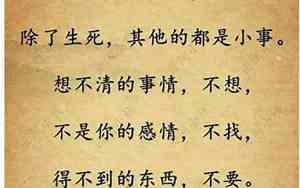 除了生死，其他的都是小事。
想不清的事情，不想，
不是你的感情，不找，
得不到的东西，不要。